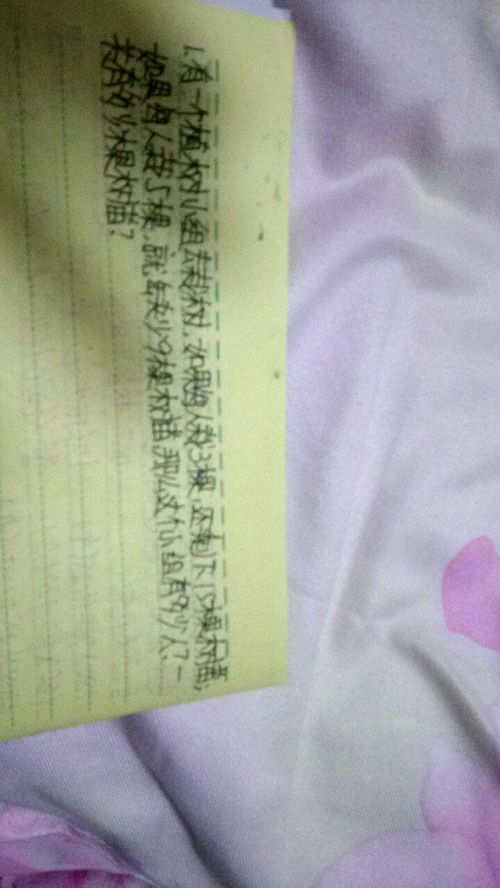 1.有一个植树小组去栽树,如果每人栽3棵,还剩下15棵树苗;
如果每人栽5棵,就缺少9棵树苗,那么这个小组有多少人?一
共有多少棵树苗?